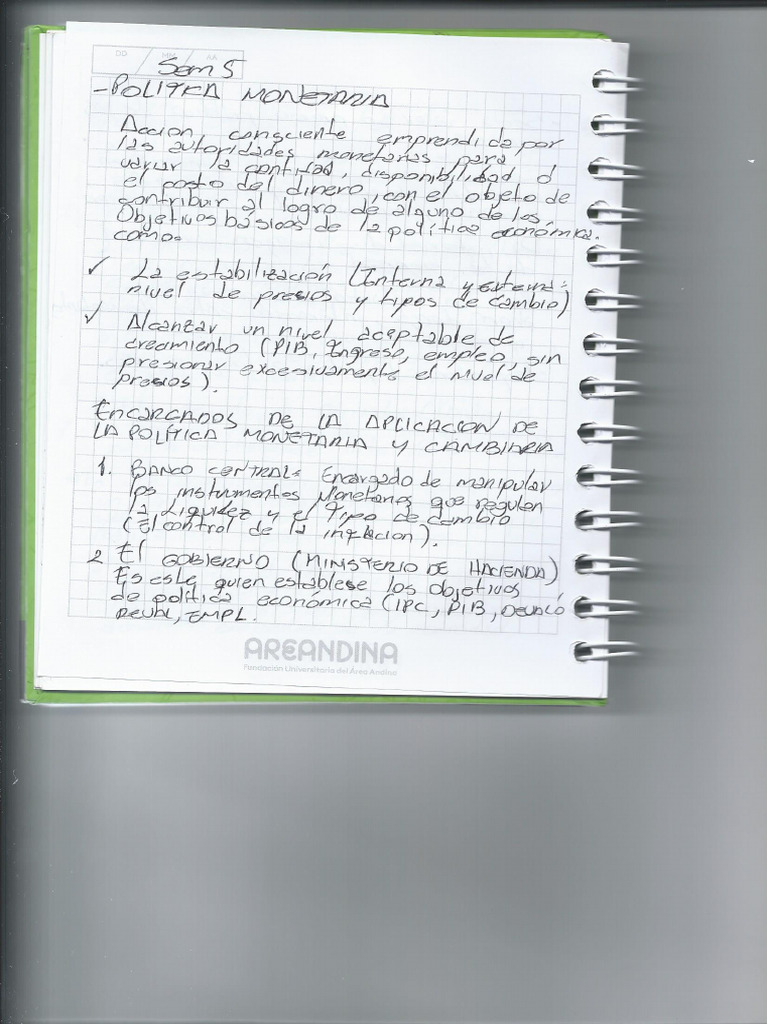 DD / MM / AA
Sem 5
- POLITICA MONETARIA
Accion consciente emprendida por
las autoridades monetarias para
variar la cantidad, disponibilidad ó
el costo del dinero, con el objeto de
contribuir al logro de alguno de los
Objetivos básicos de la política económica.
como.
✓ La estabilización (Interna y externa:
nivel de presios y tipos de cambio)
✓ Alcanzar un nivel aceptable de
crecimiento (PIB, Ingreso, empleo, sin
presionar excesivamente el nivel de
presios).
ENCARGADOS DE LA APLICACION DE
LA POLÍTICA MONETARIA Y CAMBIARIA
1. BANCO CENTRAL: Encargado de manipular
los instrumentos Monetarios que regulen
la Liquidez y el Tipo de cambio
(El control de la inflacion).
2 El GOBIERNO (MINISTERIO DE HACIENDA)
Es este quien establese los objetivos
de política económica (IPC, PIB, DEVALÓ
REVAL, EMPL.
AREANDINA
Fundación Universitaria del Área Andina